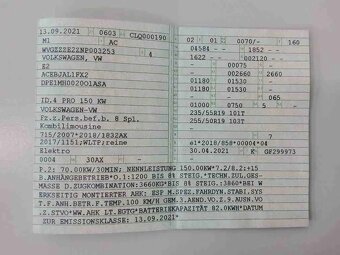 13.09.2021 0603 CLQ000190
M1 AC
WVGZZZE2ZNP003253 4
VOLKSWAGEN, VW
E2
ACEBJAL1FX2
DPE1MH0020O1ASA
ID.4 PRO 150 KW
VOLKSWAGEN-VW
Fz.z.Pers.bef.b. 8 Spl.
Kombilimousine
715/2007*2018/1832AX
2017/1151;WLTP;reine
Elektro
0004 30AX —
02 01 0070/- 160
04584 - 1852 --
1622 -- 002120 ---
— 00075 —
— 002660 2660
01180 01530 —
01180 01530 —
— 063
01000 0750 5 -
235/55R19 101T
255/50R19 103T
—
7
e1*2018/858*00004*04
30.04.2021 K GF299973
P.2: 70.00KW/30MIN; NENNLEISTUNG 150.00KW*7.2/8.2:+15
B.ANHÄNGEBETRIEB*O.1:1200 BIS 8% STEIG.*TECHN.ZUL.GES-
MASSE D.ZUGKOMBINATION:3660KG*BIS 8% STEIG.:3860*BEI W
ERKSEITIG MONTIERTER AHK: ESP M.SPEZ.FAHRDYN.STABI.SYS
T.F.ANH.BETR.F.TEMP.100 KM/H GEM.3.AEND.VO.Z.9.AUSN.VO
.Z.STVO*WW.AHK LT.EGTG*BATTERIEKAPAZITÄT 82.0KWH*DATUM
ZUR EMISSIONSKLASSE: 13.09.2021*